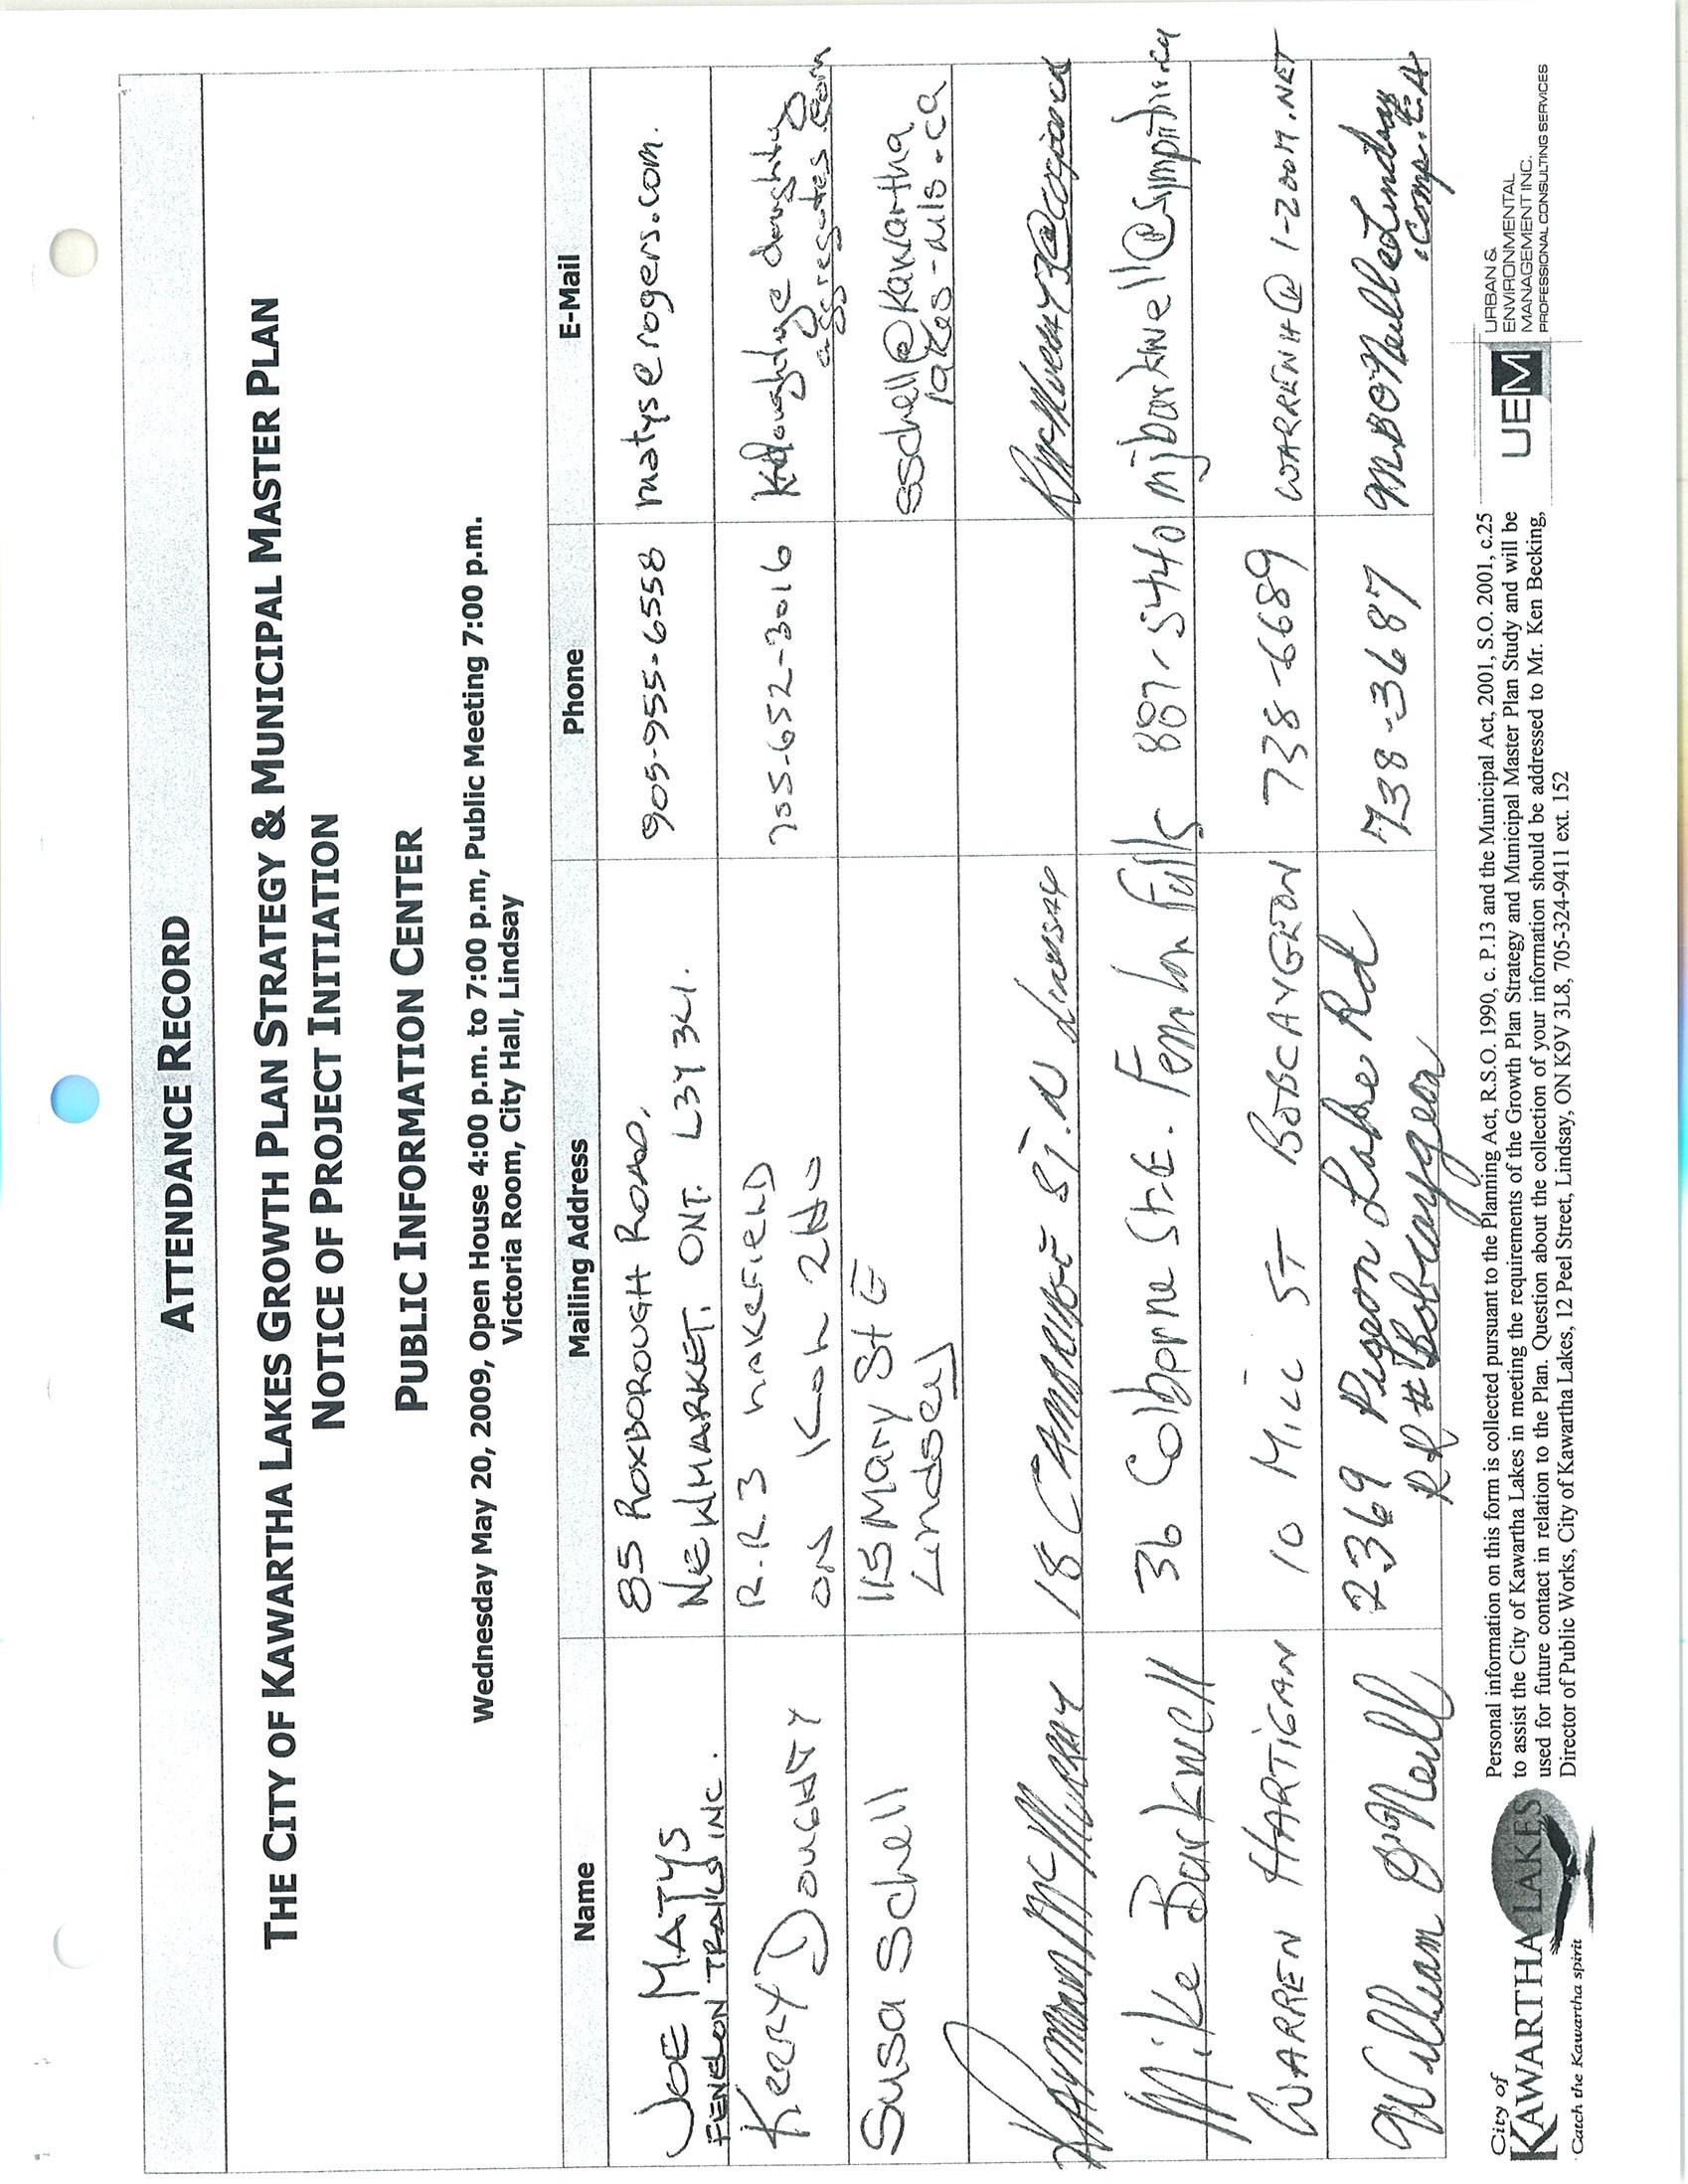 ATTENDANCE RECORD
THE CITY OF KAWARTHA LAKES GROWTH PLAN STRATEGY & MUNICIPAL MASTER PLAN
NOTICE OF PROJECT INITIATION
PUBLIC INFORMATION CENTER
Wednesday May 20, 2009, Open House 4:00 p.m. to 7:00 p.m, Public Meeting 7:00 p.m.
Victoria Room, City Hall, Lindsay
Name Mailing Address Phone E-Mail
JOE MATYS 85 ROXBOROUGH ROAD, 905-955-6558 matys@rogers.com.
FENELON TRAILS INC. NEWMARKET. ONT. L3Y 3L1.
KERRY DOUGHTY R.R.3 LAKEFIELD 705-652-3016
ON K0L 2H0 aggregates.com
Susa Schell 115 Mary St E sschell@kawartha
Lindsay lakes-mls.ca
Raymond McMurray 18 CAMBRIDGE ST. N Lindsay
Mike Barkwell 36 Colborne St. E. Fenelon Falls 887-5440 mjbarkwell@sympatico.ca
WARREN HARTIGAN 10 MILL ST BOBCAYGEON 738-6689 WARRENH@1-ZOOM.NET
William O'Neill 2369 Pigeon Lake Rd 738-3687
RR# Bobcaygeon
City of
KAWARTHA LAKES
Catch the Kawartha spirit
Personal information on this form is collected pursuant to the Planning Act, R.S.O. 1990, c. P.13 and the Municipal Act, 2001, S.O. 2001, c.25
to assist the City of Kawartha Lakes in meeting the requirements of the Growth Plan Strategy and Municipal Master Plan Study and will be
used for future contact in relation to the Plan. Question about the collection of your information should be addressed to Mr. Ken Becking,
Director of Public Works, City of Kawartha Lakes, 12 Peel Street, Lindsay, ON K9V 3L8, 705-324-9411 ext. 152
UEM
URBAN &
ENVIRONMENTAL
MANAGEMENT INC.
PROFESSIONAL CONSULTING SERVICES